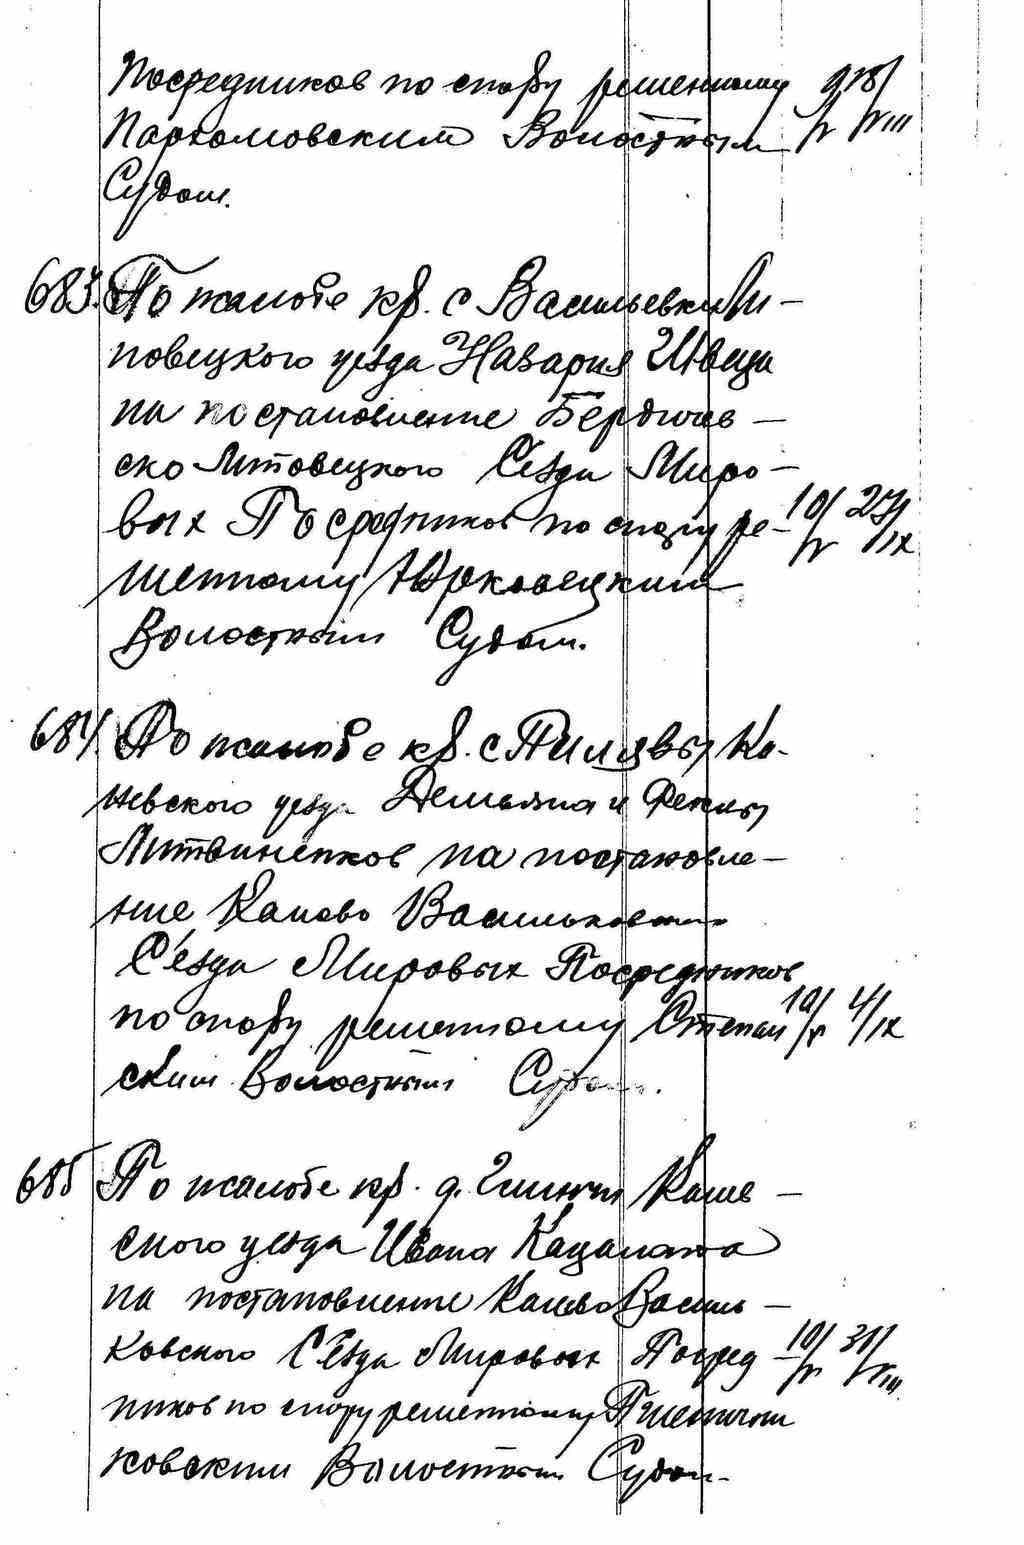 Посредников по спору решенному
Пархомовским Волостным
Судом.
683. По жалобе кр. с Васильевки Ли-
повецкого уезда Назария Швеца
на постановление Бердичев-
ско Липовецкого Сезда Миро-
вых Посредников по спору ре- 10/V 27/IX
шенному Юрковецким
Волостным Судом.
684. По жалобе кр. с Пилявы Ка-
невского уезда Демьяна и Феклы
Литвиненков на постановле-
ние Канево Васильковского
Сезда Мировых Посредников
по спору решенному Степан 10/V 4/IX
ским Волостным Судом.
685 По жалобе кр. д. Глинчи Кане-
вского уезда Ивана
на постановление Канево Василь-
ковского Сезда Мировых Посред- 10/V 31/VIII
ников по спору решенному Пшенични
ковским Волостным Судом.